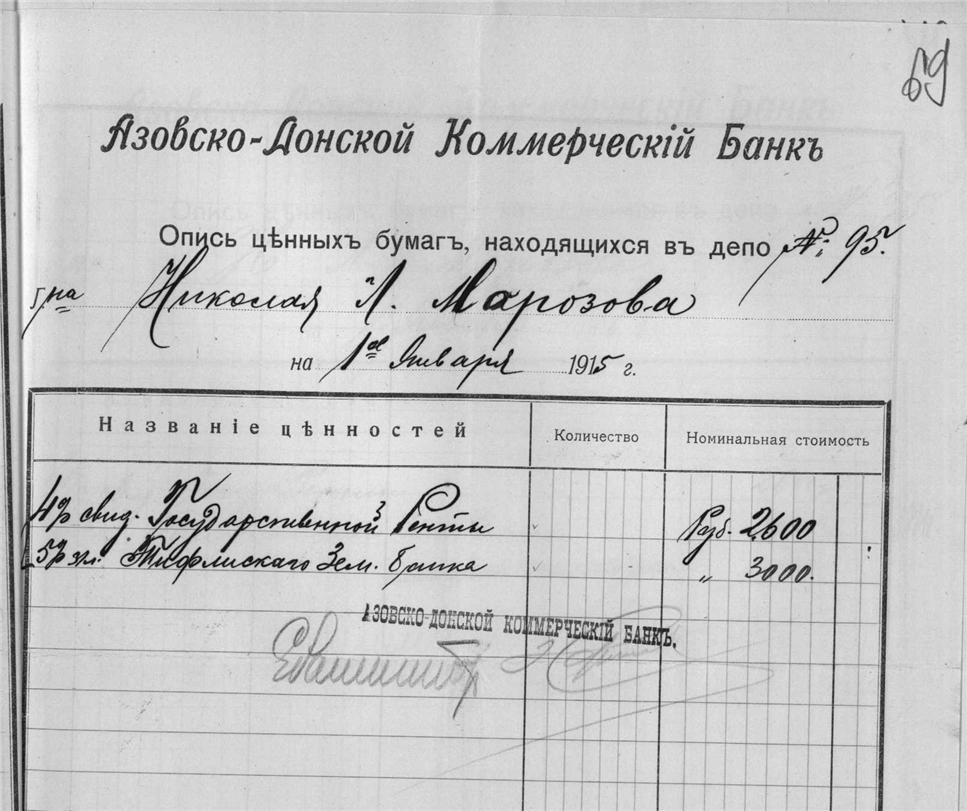 69
Азовско-Донской Коммерческій Банкъ
Опись цѣнныхъ бумагъ, находящихся въ депо №: 95.
г-на Николая Л. Марозова
на 1ое Января 1915 г.
Названіе цѣнностей Количество Номинальная стоимость
4% свид. Государственной Ренты Руб. 2600
5% з.л. Тифлискаго Зем. банка " 3000.
АЗОВСКО-ДОНСКОЙ КОММЕРЧЕСКІЙ БАНКЪ.